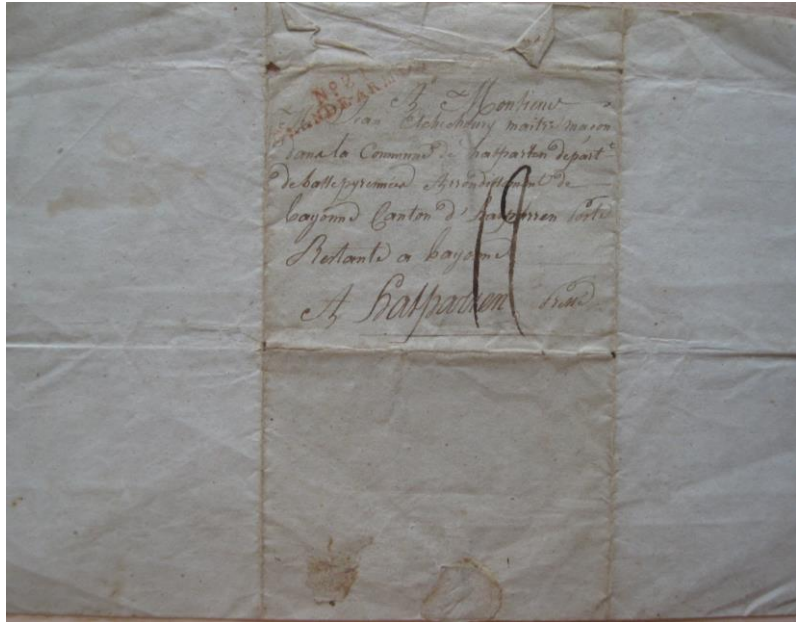 No 2
GRANDE-ARMÉE
A Monsieur
Jean maitre maçon
dans la Commune de hasparren départ.t
de basse pyrennées Arrondissement de
bayonne Canton d' hasparren poste
Restante a bayonne
A hasparren
19